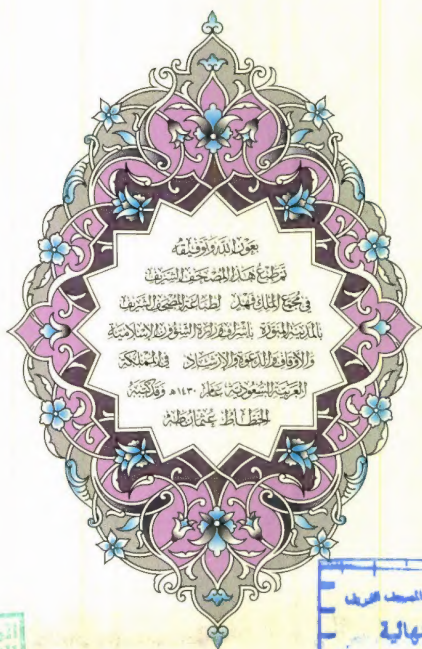 بعون الله وتوفيقه
تم طبع هذا المصحف الشريف
في مجمع الملك فهد لطباعة المصحف الشريف
بالمدينة المنورة بإشراف وزارة الشؤون الإسلامية
والأوقاف والدعوة والإرشاد في المملكة
العربية السعودية عام ١٤٣٠ه وقد كتبه
الخطاط عثمان طه
المصحف الشريف
نهائية